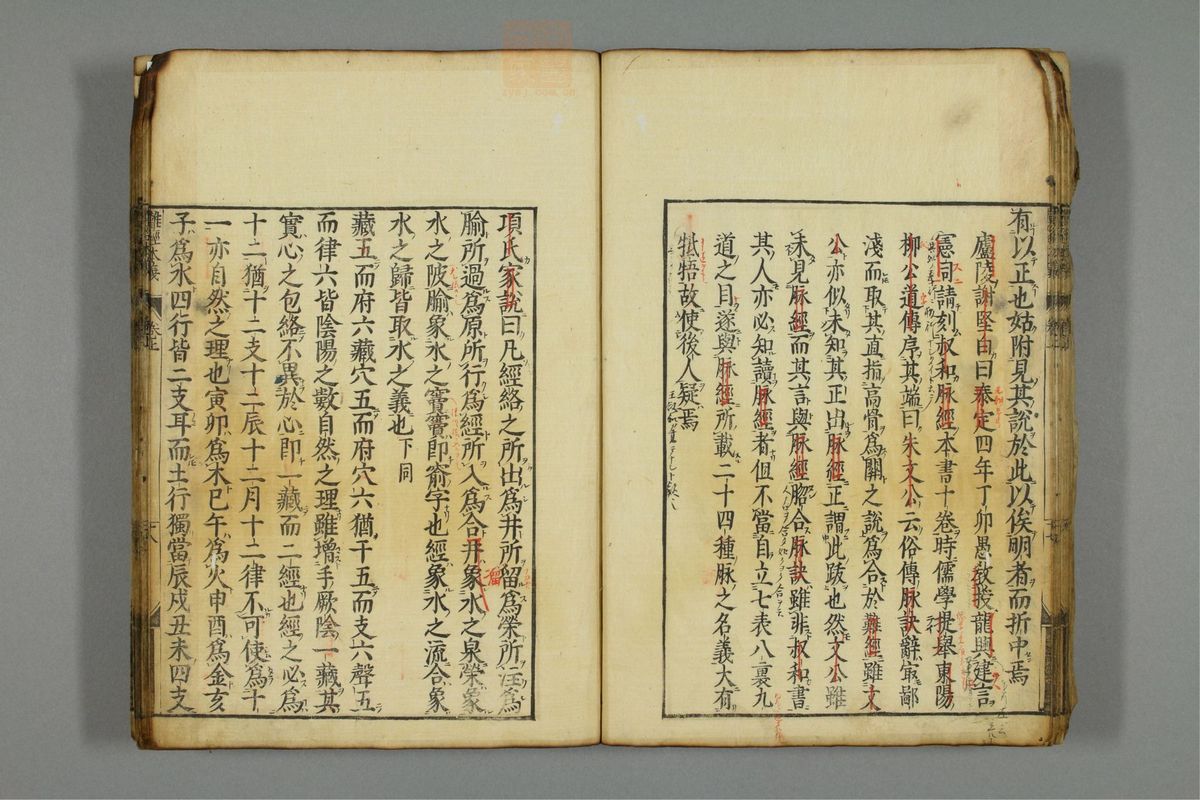 有以正也姑附見其說於此以俟明者而折中焉
廬陵謝堅白曰泰定四年丁卯愚教授龍興建言
憲司請刻叔和脉經本書十卷時儒學提舉東陽
柳公道傳序其端曰朱文公云俗傳脉訣辭最鄙
淺而取其直指高骨爲關之說爲合於難經雖文
公亦似未知其正出脉經正謂此跋也然文公雖
未見脉經而其言與脉經脗合脉訣雖非叔和書
其人亦必知讀脉經者但不當自立七表八裏九
道之目遂與脉經所載二十四種脉之名義大有
牴牾故使後人疑焉
項氏家說曰凡經絡之所出爲井所留爲滎所注爲
腧所過爲原所行爲經所入爲合井象水之泉滎象
水之陂腧象水之竇竇即窬字也經象水之流合象
水之歸皆取水之義也下同
藏五而府六藏穴五而府穴六猶干五而支六聲五
而律六皆陰陽之數自然之理雖增手厥陰一藏其
實心之包絡不異於心即一藏而二經也經之必爲
十二猶十二支十二辰十二月十二律不可使爲十
一亦自然之理也寅卯爲木巳午爲火申酉爲金亥
子爲水四行皆二支耳而土行獨當辰戌丑未四支
溜